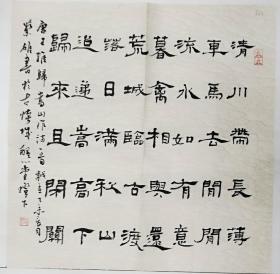 清川帶長薄
車馬去閒閒
流水如有意
暮禽相與還
荒城臨古渡
落日滿秋山
迢遞嵩高下
歸來且閉關
唐王維歸嵩山作詩一首
書於古燈下